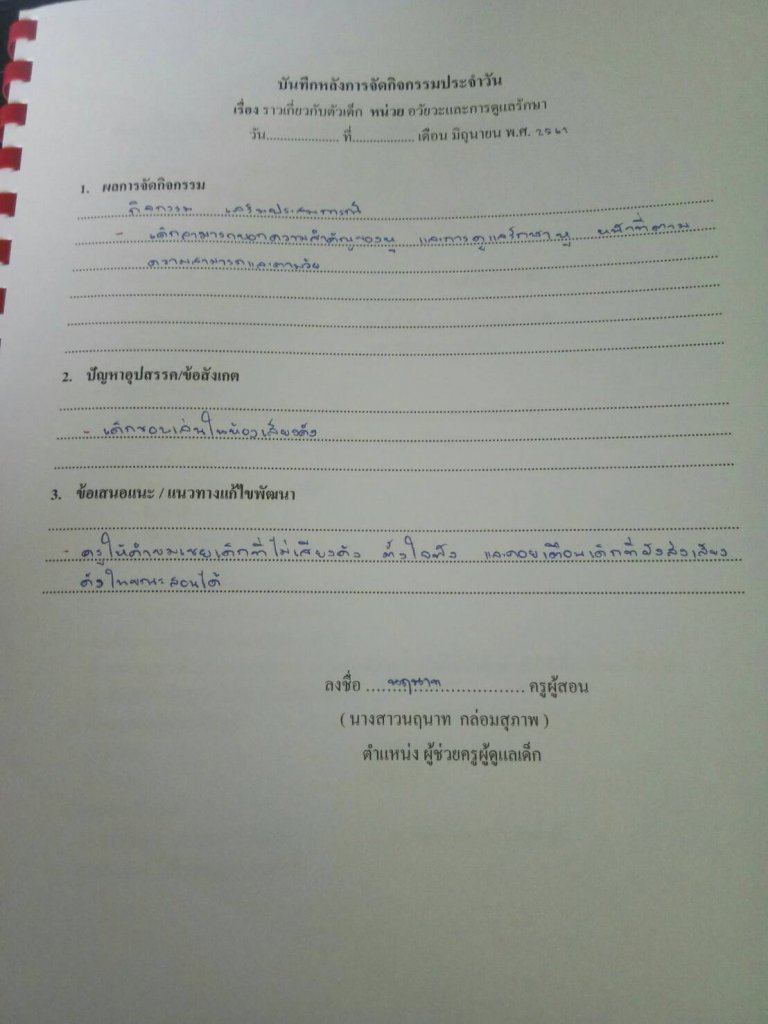 บันทึกหลังการจัดกิจกรรมประจำวัน
เรื่อง ราวเกี่ยวกับตัวเด็ก หน่วย อวัยวะและการดูแลรักษา
วัน.................... ที่................. เดือน มิถุนายน พ.ศ. ๒๕๖๑
1. ผลการจัดกิจกรรม
กิจกรรม เสริมประสบการณ์
- เด็กสามารถบอกความสำคัญของหู และการดูแลรักษาหู หน้าที่ตาม
ความสามารถและตามวัย
2. ปัญหาอุปสรรค/ข้อสังเกต
- เด็กชอบเล่นในห้องเสียงดัง
3. ข้อเสนอแนะ / แนวทางแก้ไขพัฒนา
- ครูให้คำชมเชยเด็กที่ไม่เสียงดัง ตั้งใจฟัง และคอยเตือนเด็กที่ยังส่งเสียง
ดังในขณะสอนได้
ลงชื่อ ....นฤนาท................ ครูผู้สอน
( นางสาวนฤนาท กล่อมสุภาพ )
ตำแหน่ง ผู้ช่วยครูผู้ดูแลเด็ก